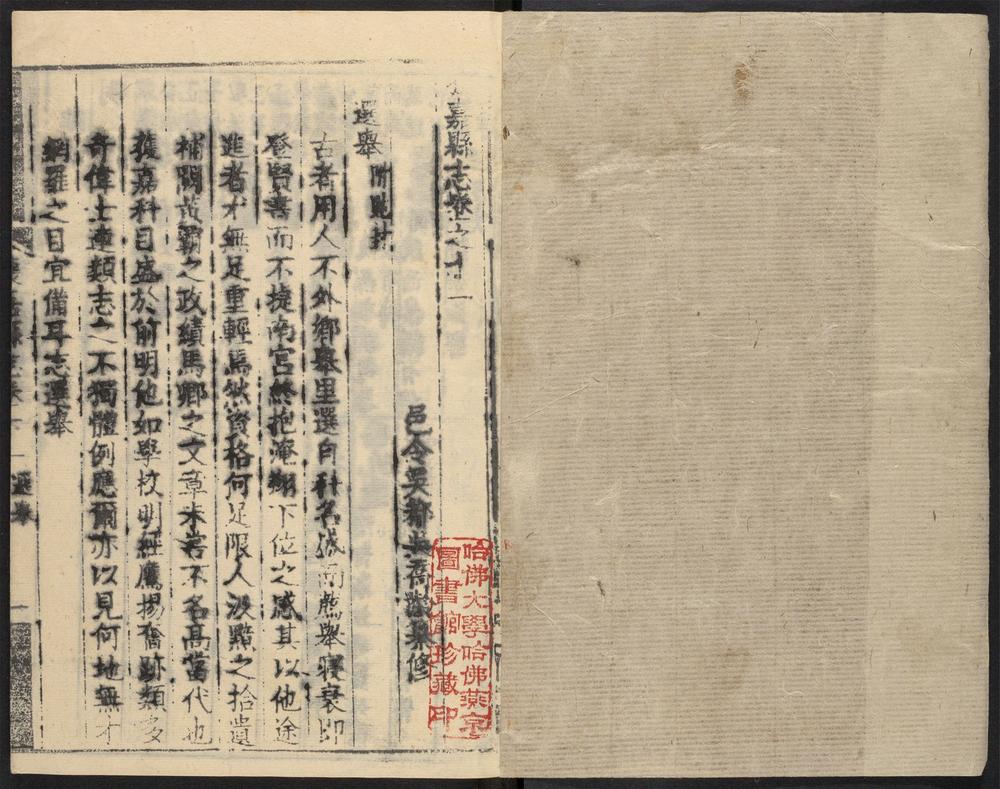 嘉縣志卷之十一
邑令吳喬齡纂修
選舉附貤封
古者用人不外鄉舉里選自科名盛而薦舉寢衰即
登賢書而不捷南宮終抱淹翔下位之感其以他途
進者才無足重輕焉然資格何足限人汲黯之拾遺
補闕黃霸之政績馬卿之文章未嘗不名高當代也
獲嘉科目盛於前明他如學校明經鷹揚奮跡類多
奇偉士連類志之不獨體例應爾亦以見何地無才
網羅之目宜備耳志選舉
選舉
一
哈佛大學哈佛燕京
圖書館珍藏印